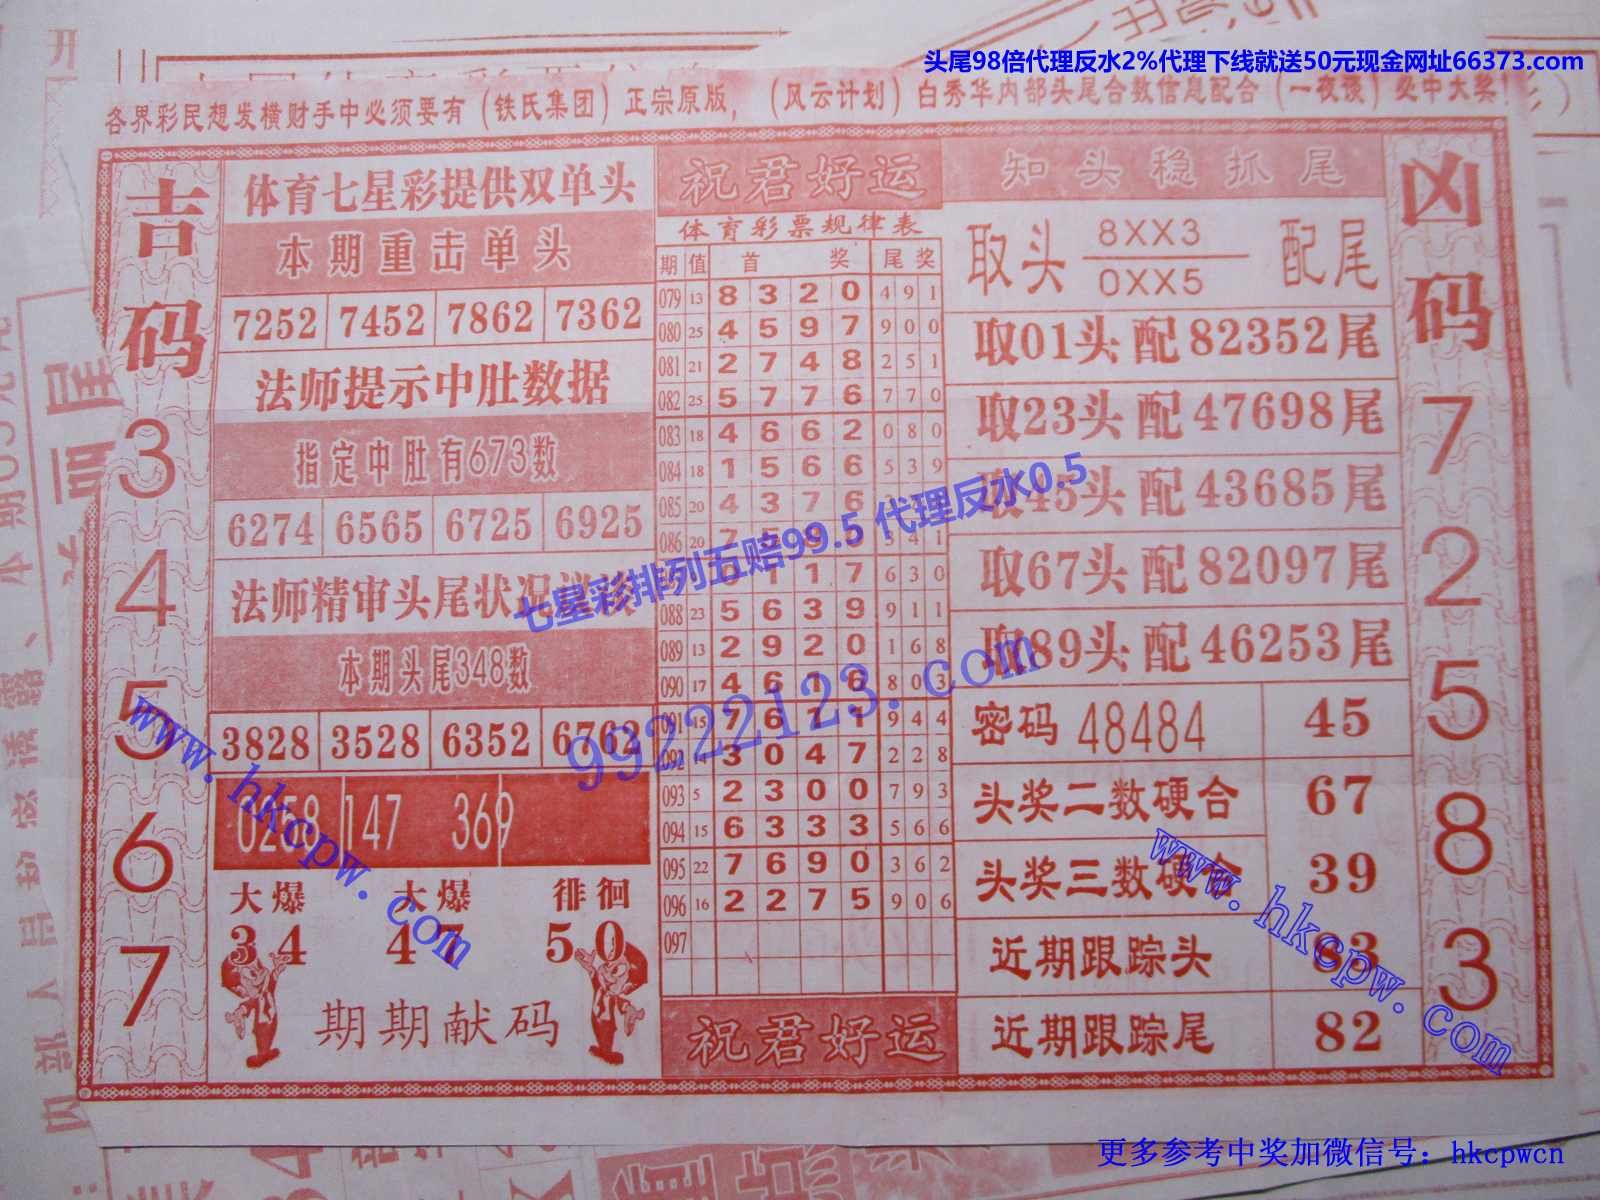 头尾98倍代理反水2%代理下线就送50元现金网址66373.com
各界彩民想发横财手中必须要有（铁氏集团）正宗原版，（风云计划）白秀华内部头尾合数信息配合（一夜谈）必中大奖！
吉码
3
4
5
6
7
体育七星彩提供双单头
本期重击单头
7252 7452 7862 7362
法师提示中肚数据
指定中肚有673数
6274 6565 6725 6925
法师精审头尾状况
本期头尾348数
3828 3528 6352 6762
0258 147 369
大爆 大爆 徘徊
34 47 50
期期献码
祝君好运
体育彩票规律表
期 值 首 奖 尾 奖
079 13 8 3 2 0 4 9 1
080 25 4 5 9 7 9 0 0
081 21 2 7 4 8 2 5 1
082 25 5 7 7 6 7 7 0
083 18 4 6 6 2 0 8 0
084 18 1 5 6 6 5 3 9
085 20 4 3 7 6
086 20 7 5 3 4 1
0 1 1 7 6 3 0
088 23 5 6 3 9 9 1 1
089 13 2 9 2 0 1 6 8
090 17 4 6 1 6 8 0 3
091 15 7 6 1 1 9 4 4
092 14 3 0 4 7 2 2 8
093 5 2 3 0 0 7 9 3
094 15 6 3 3 3 5 6 6
095 22 7 6 9 0 3 6 2
096 16 2 2 7 5 9 0 6
097
祝君好运
知头稳抓尾
取头 8XX3 配尾
0XX5
取01头 配82352尾
取23头 配47698尾
取45头 配43685尾
取67头 配82097尾
取89头 配46253尾
密码 48484 45
头奖二数硬合 67
头奖三数硬合 39
近期跟踪头 63
近期跟踪尾 82
凶码
7
2
5
8
3
七星彩排列五赔99.5 代理反水0.5
99222123.com
www.hkcpw.com
www.hkcpw.com
更多参考中奖加微信号：hkcpwcn